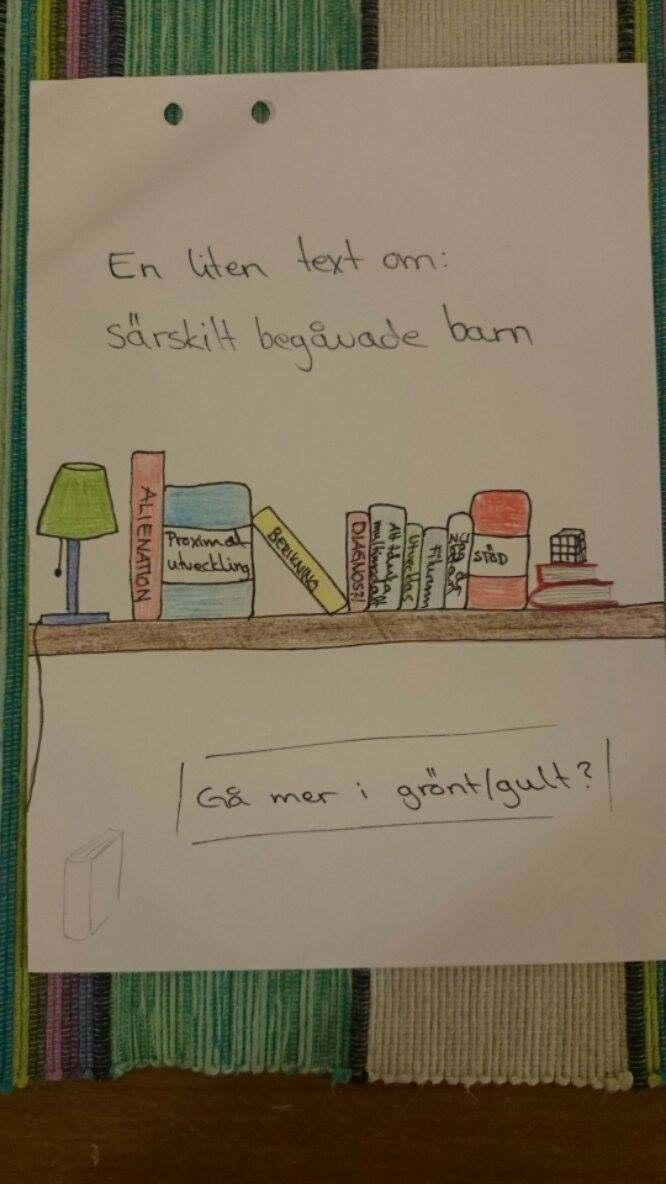 En liten text om:
särskilt begåvade barn
ALIENATION
Proximal
utveckling
BERIKNING
DIAGNOS?!
Att tänka
multimodalt
Utvecklas
STÖD
Gå mer i grönt/gult?